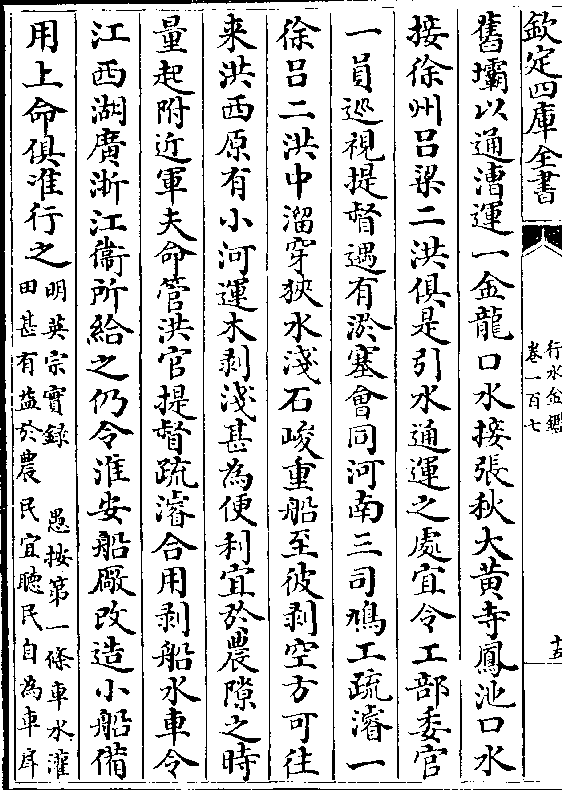 欽定四庫全書
行水金鑑
卷一百七
十五
舊壩以通漕運一金龍口水接張秋大黃寺鳳池口水
接徐州吕梁二洪俱是引水通運之處宜令工部委官
一員巡視提督遇有淤塞會同河南三司鳩工疏濬一
徐吕二洪中溜穿狹水淺石峻重船至彼剥空方可往
来洪西原有小河運木剥淺甚為便利宜於農隙之時
量起附近軍夫命管洪官提督疏濬合用剥船水車令
江西湖廣浙江衞所給之仍令淮安船厰改造小船備
用上命俱准行之
明英宗實録　愚按第一條車水灌
田甚有益於農民宜聽民自為車戽